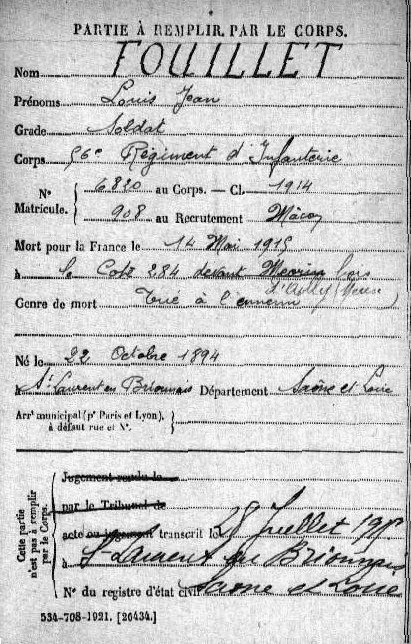 PARTIE À REMPLIR PAR LE CORPS.
Nom FOUILLET
Prénoms Louis Jean
Grade Soldat
Corps 56e Régiment d'Infanterie
N° Matricule. { 6820 au Corps. — Cl. 1914
908 au Recrutement Mâcon
Mort pour la France le 14 Mai 1915
à la Cote 284 devant bois
d'Ailly (Meuse)
Genre de mort Tué à l'ennemi
Né le 22 Octobre 1894
à St Laurent en Brionnais Département Saône et Loire
Arrt municipal (pr Paris et Lyon),
à défaut rue et N°.
Cette partie n'est pas à remplir par le Corps.
Jugement rendu le
par le Tribunal de
acte ou jugement transcrit le 28 Juillet
à St Laurent en Brionnais
N° du registre d'état civil Saone et Loire
534-708-1921. [26434.]